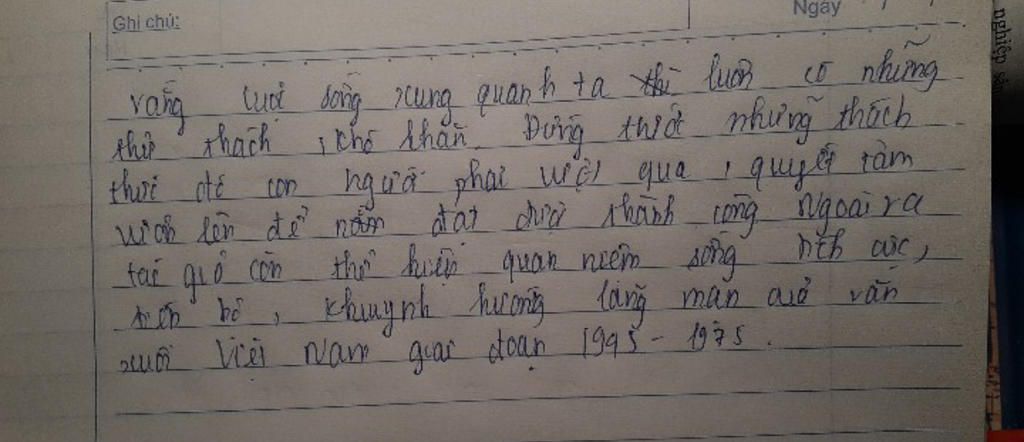 Ghi chú:
Ngày
nghiệp
rằng cuộc sống xung quanh ta luôn có những
thử thách, khó khăn. Đứng trước những thách
thức đó con người phải vượt qua, quyết tâm
vươn lên để đạt được thành công. Ngoài ra
tác giả còn thể hiện quan niệm sống tích cực,
tiến bộ, khuynh hướng lãng mạn của văn
xuôi Việt Nam giai đoạn 1945 - 1975.